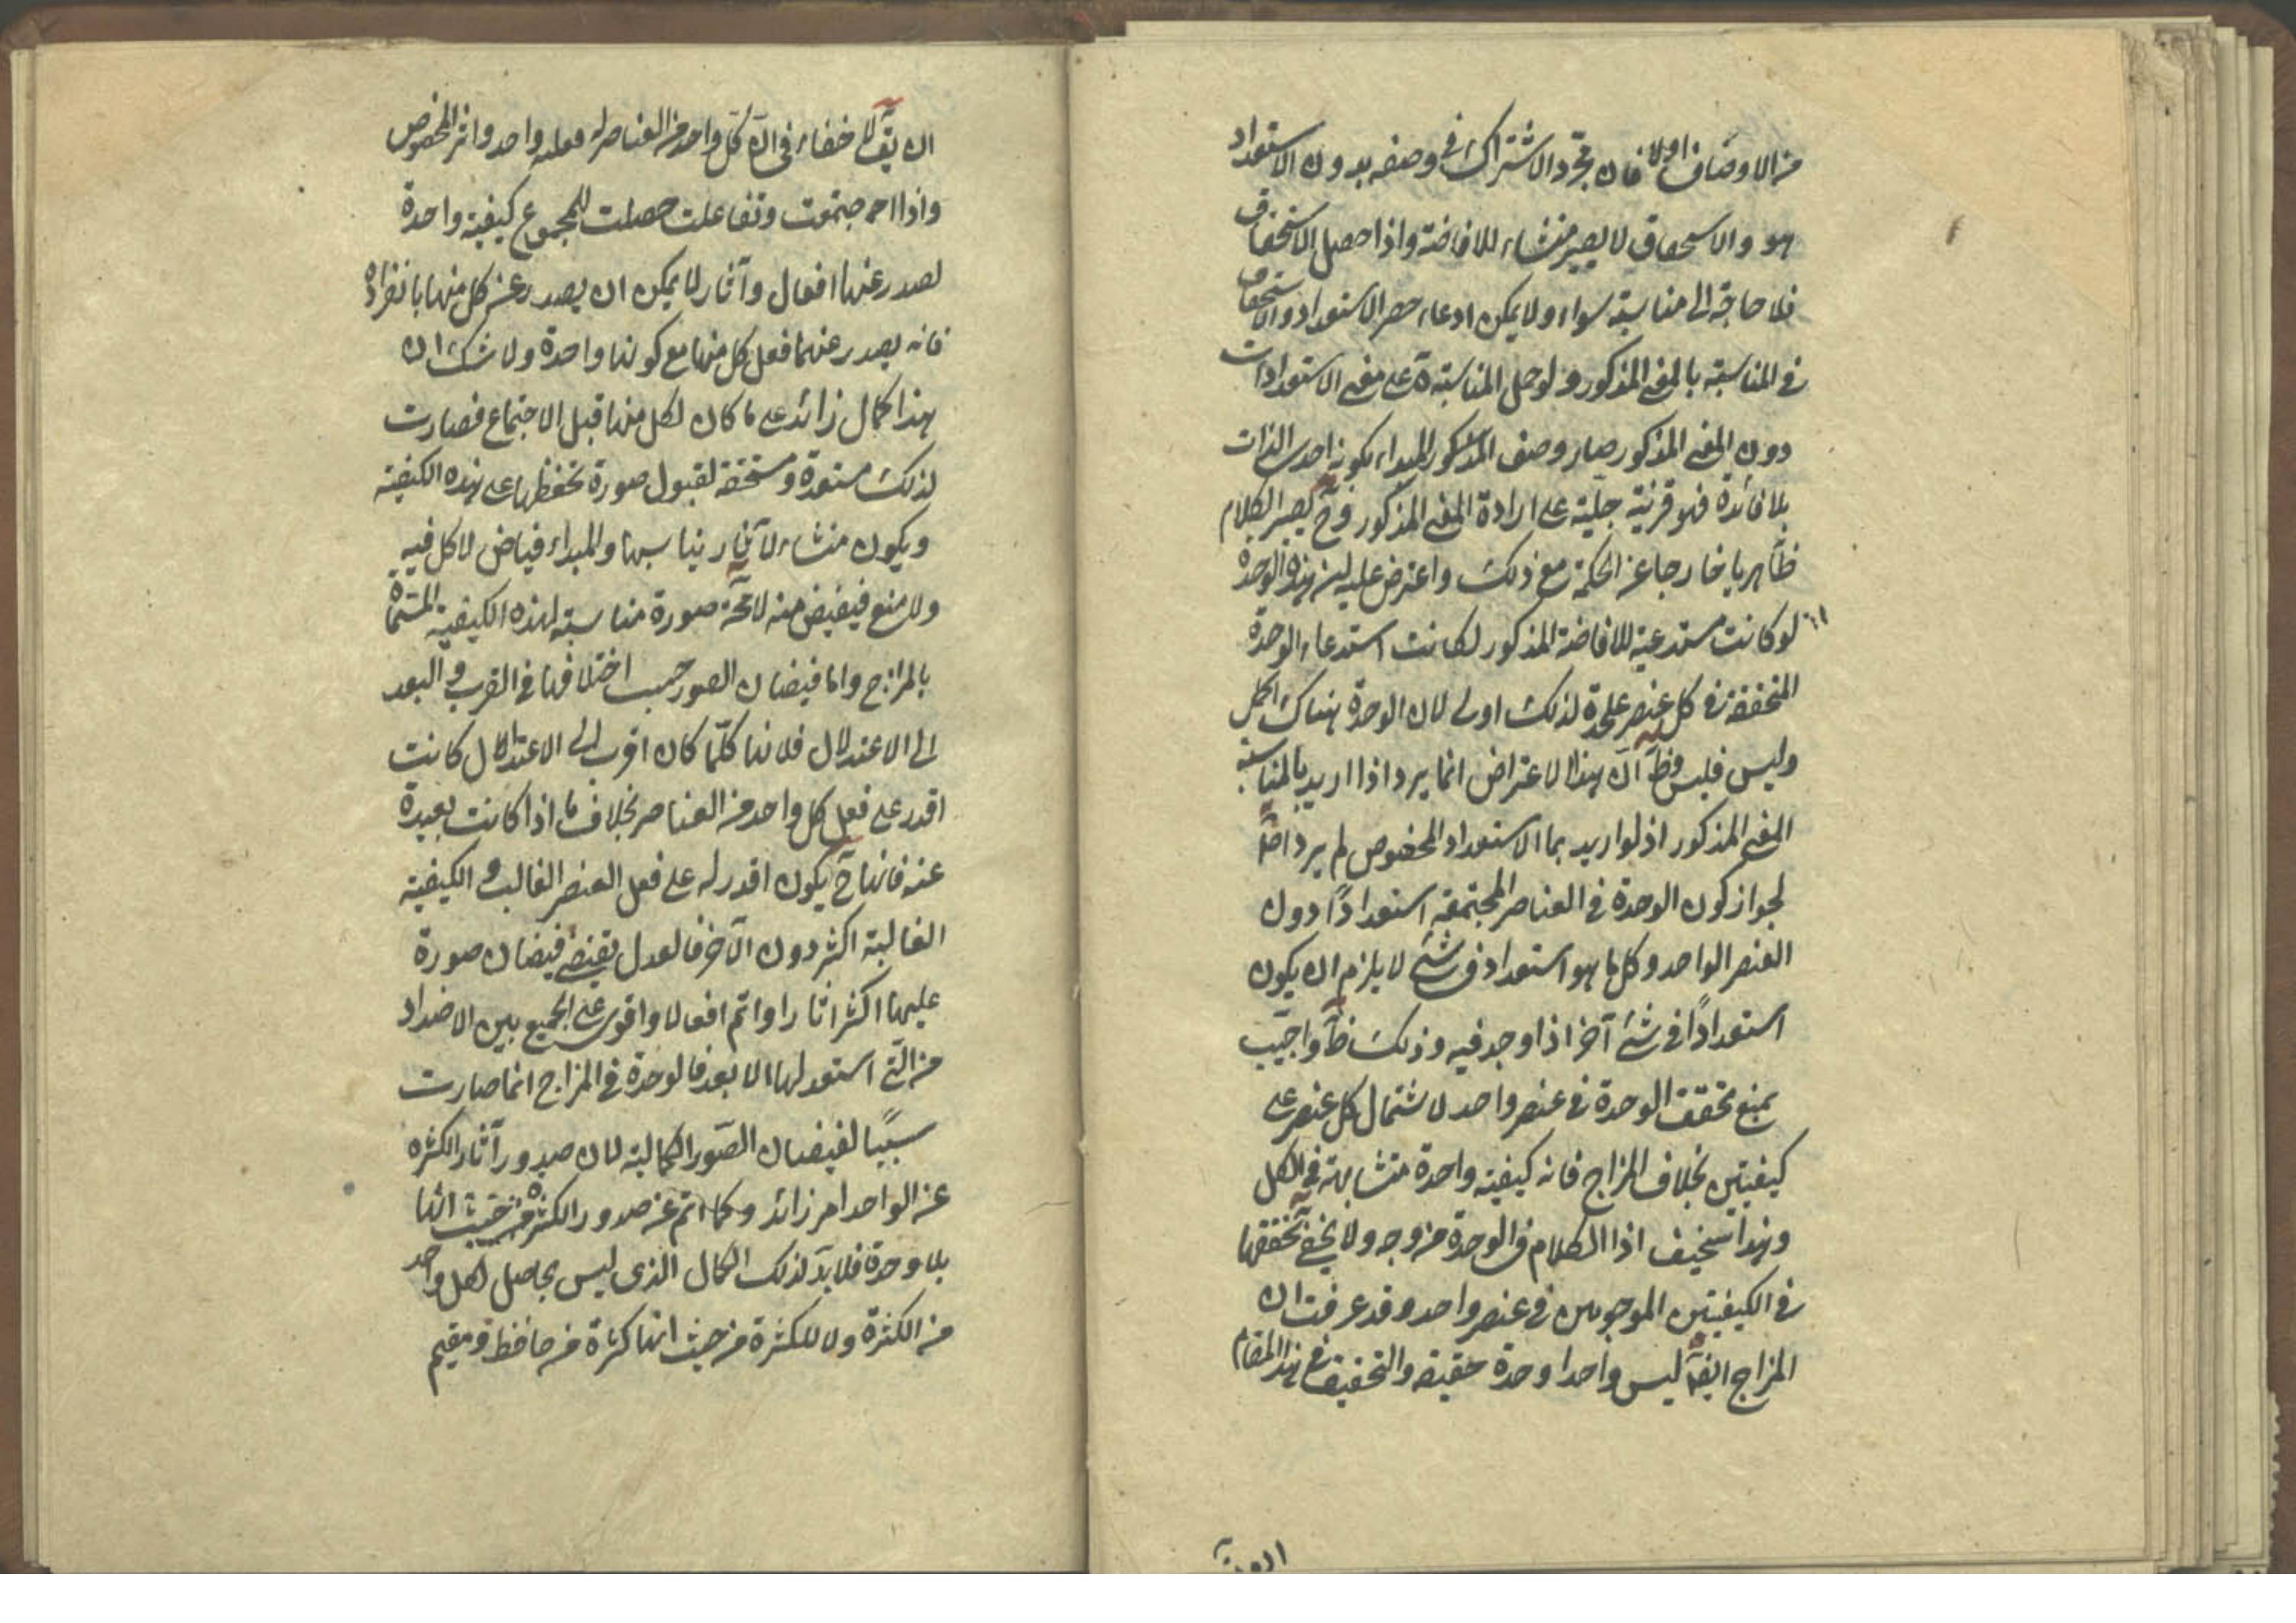 من الاوصاف اولا فان مجرد الاشتراك في وصفه بدون الاستعداد
هو والاستحقاق لا يصير منشاء للافاضة واذا حصل الاستحقاق
فلا حاجة الى مناسبة سواء ولا يمكن ادعاء حصر الاستعداد والاستحقاق
في المناسبة بالمعنى المذكور ولو حمل المناسبة على معنى الاستعدادات
دون المعنى المذكور صار وصف المذكور للمبداء بكونه احدى الذات
بلا فائدة فهو قرنية جلية على ارادة المعنى المذكور وح يصير الكلام
ظاهريا خارجا عن الحكمة مع ذلك واعترض عليه لين هذه الوحدة
لو كانت مستدعية للافاضة المذكور لكانت استدعاء الوحدة
المتحققة في كل عنصر علحدة لذلك اولى لان الوحدة هناك اكمل
وليس فليس وظ ان هذا الاعتراض انما يرد اذا اريد بالمناسبة
المعنى المذكور اذ لو اريد بها الاستعداد المخصوص لم يرد اصلا
لجواز كون الوحدة في العناصر المجتمعة استعدادًا دون
العنصر الواحد وكل ما هو استعداد في شئ لا يلزم ان يكون
استعدادًا في شئ آخر اذا وجد فيه وذلك ظ واجيب
بمنع تحقق الوحدة في عنصر واحد لاشتمال كل عنصر على
كيفيتين بخلاف المزاج فانه كيفية واحدة متشابهة في الكل
وهذا سخيف اذا الكلام في الوحدة من وجه ولا يخفى تحققها
في الكيفيتين الموجودتين في عنصر واحد وقد عرفت ان
المزاج ايضا ليس واحدا وحدة حقيقه والتحقيق في هذا المقام
ان يق لا خفاء في ان كل واحد من العناصر له فعل واحد واثر المخصوص
واذا اجتمعت وتفاعلت حصلت للمجموع كيفية واحدة
يصدر عنها افعال وآثار لا يمكن ان يصدر عن كل منها بانفراده
فانه يصدر عنها فعل كل منها مع كونها واحدة ولا شك ان
هذا كمال زائد على ما كان لكل منها قبل الاجتماع فصارت
لذلك مستعدة ومستحقة لقبول صورة تحفظها على هذه الكيفية
ويكون منشاء لآثار يناسبها والمبداء فياض لا كل فيه
ولا منع فيفيض منه لا محة صورة مناسبة لهذه الكيفية المسماة
بالمزاج واما فيضان الصور حسب اختلافها في القرب والبعد
الى الاعتدال فلانها كلما كان اقرب الى الاعتدال كانت
اقدر على فعل كل واحد من العناصر بخلاف ما اذا كانت بعيدة
عنه فانها ح يكون اقدر له على فعل العنصر الغالب والكيفية
الغالبة اكثر دون الآخر فالعدل يقتضي فيضان صورة
عليها اكثر اثارا واتم افعالا واقوى على الجمع بين الاضداد
من التى استعد لها الابعد فالوحدة في المزاج انما صارت
سببًا لفيضان الصور الكمالية لان صدور آثار الكثره
عن الواحد امر زائد وكمال اتم عن صدور الكثرة من حيث انها
بلا وحدة فلا بد لذلك الكمال الذى ليس بحاصل لكل واحد
من الكثرة ولا للكثرة من حيث انها كثرة من حافظ ومقيم